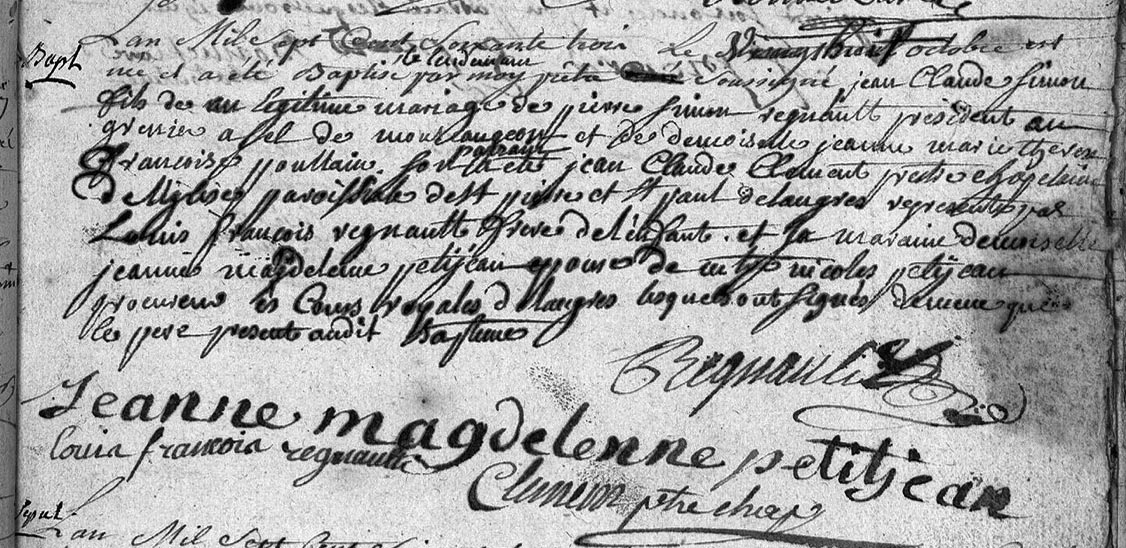 Bapt
Lan Mil Sept Cent Soixante trois Le Vingt huit octobre est
né et a eté le lendemain Baptisé par moy prêtre Soussigné jean Claude Simon
fils de en legitime mariage de pierre simon regnault president au
grenier a sel de et de demoiselle jeanne marie therese
françoise poullain. son parain a eté jean Claude Clement pretre chapelain
de leglise paroissiale de St pierre et St paul de langres representé par
Louis françois regnault frere de l'enfant. et sa maraine demoiselle
jeanne magdeleine petitjean epouse de nicolas petitjean
procureur es Cours royales de langres lesquels ont signés de meme que
le pere present audit Bapteme
Regnault
Jeanne magdelenne petitjean
louis francois regnault
Clement ptre chap
Sepul
Lan Mil Sept Cent